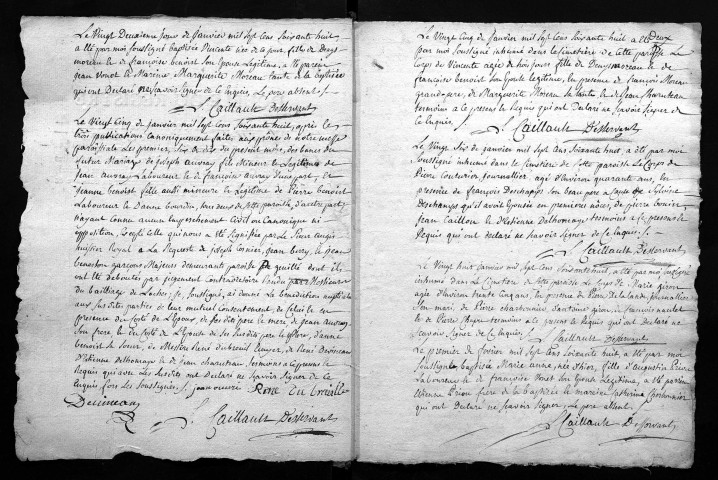 Le Vingt Deuxieme Jour de Janvier mil Sept Cens Soixante huit
a été par moi soussigné baptisée Vincente née de ce jour, fille de Denys
moreau et de françoise benoist son Epouse Légitime, a été parein
jean et la Mareine Marguerite Moreau tante de la baptisée
qui ont Déclaré ne sçavoir signer de ce Enquis. Le pere absent ./.
S. Caillault Desservant
Le Vingt Cinq de janvier mil Sept Cens Soixante huit, après les
trois publications Canoniquement faites aux prônes de notre messe
paroissiale Le premier, Six, et dix du présent mois, des bancs du
futur Mariage de joseph auvray fils Mineur et Légitime de
jean auvray Laboureur et de françoise auvray d'une part, et
jeanne benoist fille aussi mineure et Légitime de Pierre benoist
Laboureur et D'anne bourdin, tous deux de cette paroisse, d'autre part,
n'ayant connu aucun Empeschement Civil ou Canonique ni
opposition, Excepté celle qui nous a été Signifiée par Le Sieur
huissier Royal a La Requeste de joseph, jean, et jean
garçons Majeurs demeurants paroisse de genillé dont ils
ont été deboutés par jugement Contradictoire Rendu par
du bailliage de Loches; je, soussigné, ai donné La benediction nuptiale
aux Susdites parties de leur mutuel Consentement, de Celui et en
presence du Costé de L'Epoux, de Ses dits pere et mere de jean auvray
Son frere et du Costé de L'Epouse de Ses Susdits pere et mere, d'anne
benoist sa Soeur, de Messire René dubreuil Ecuyer, de René
D'Etienne delhomaye et de jean charuteau, temoins a ce presens
Lequis qui avec Les Susdits ont Declaré ne Sçavoir Signer de ce
Enquis fors Les Soussignés ./. jean auvré René Du breuille
S. Caillault Desservant
Le Vingt Cinq de janvier mil Sept Cens Soixante huit a été
par moi soussigné inhumé dans le Cimetiere de Cette paroisse Le
Corps de Vincente agée de trois jours fille de Denys moreau et de
françoise benoist Son Epouse legitime, En presence de françois Moreau
grand-pere, de Marguerite Moreau sa tante et de jean
temoins a ce presens Lequis qui ont Déclaré ne Sçavoir Signer de
ce Enquis ./.
S. Caillault Desservant
Le Vingt Six de janvier mil Sept Cens Soixante huit, a été par moi
soussigné inhumé dans le Cimetiere de Cette paroisse Le Corps de
Pierre Couturier journallier, agé d'Environ quarante ans, En
presence de françois Deschamps Son beau pere a cause de Sylvine
Deschamps qu'il avoit Epousée en premieres nôces, de pierre
jean Caillon et d'Etienne delhomaye temoins a ce presens
Lequis qui ont declaré ne Sçavoir Signer de ce Enquis ./.
S. Caillault Desservant
Le Vingt huit Janvier mil Sept Cens Soixante huit, a été par moi soussigné
inhumé dans Le Cimetiere de Cette paroisse Le Corps de Marie gion
agée d'Environ trente Cinq ans, En presence de Pierre De la lande journallier
Son mari, de Pierre charbonnier, d'antoine gion, de françois
et de Pierre temoins a ce presens Lequis qui ont Declaré ne
Sçavoir Signer de ce Enquis ./.
S. Caillault Desservant
Le premier de fevrier mil Sept Cens Soixante huit, a été par moi
Soussigné baptisée Marie anne, née d'hier, fille d'augustin Prion
Laboureur et de françoise Son Epouse Legitime, a été parein
Etienne Prion frere de la baptisée et mareine Catherine Charbonnier
qui ont Declaré ne Sçavoir Signer, Le pere absent ./.
S. Caillault Desservant